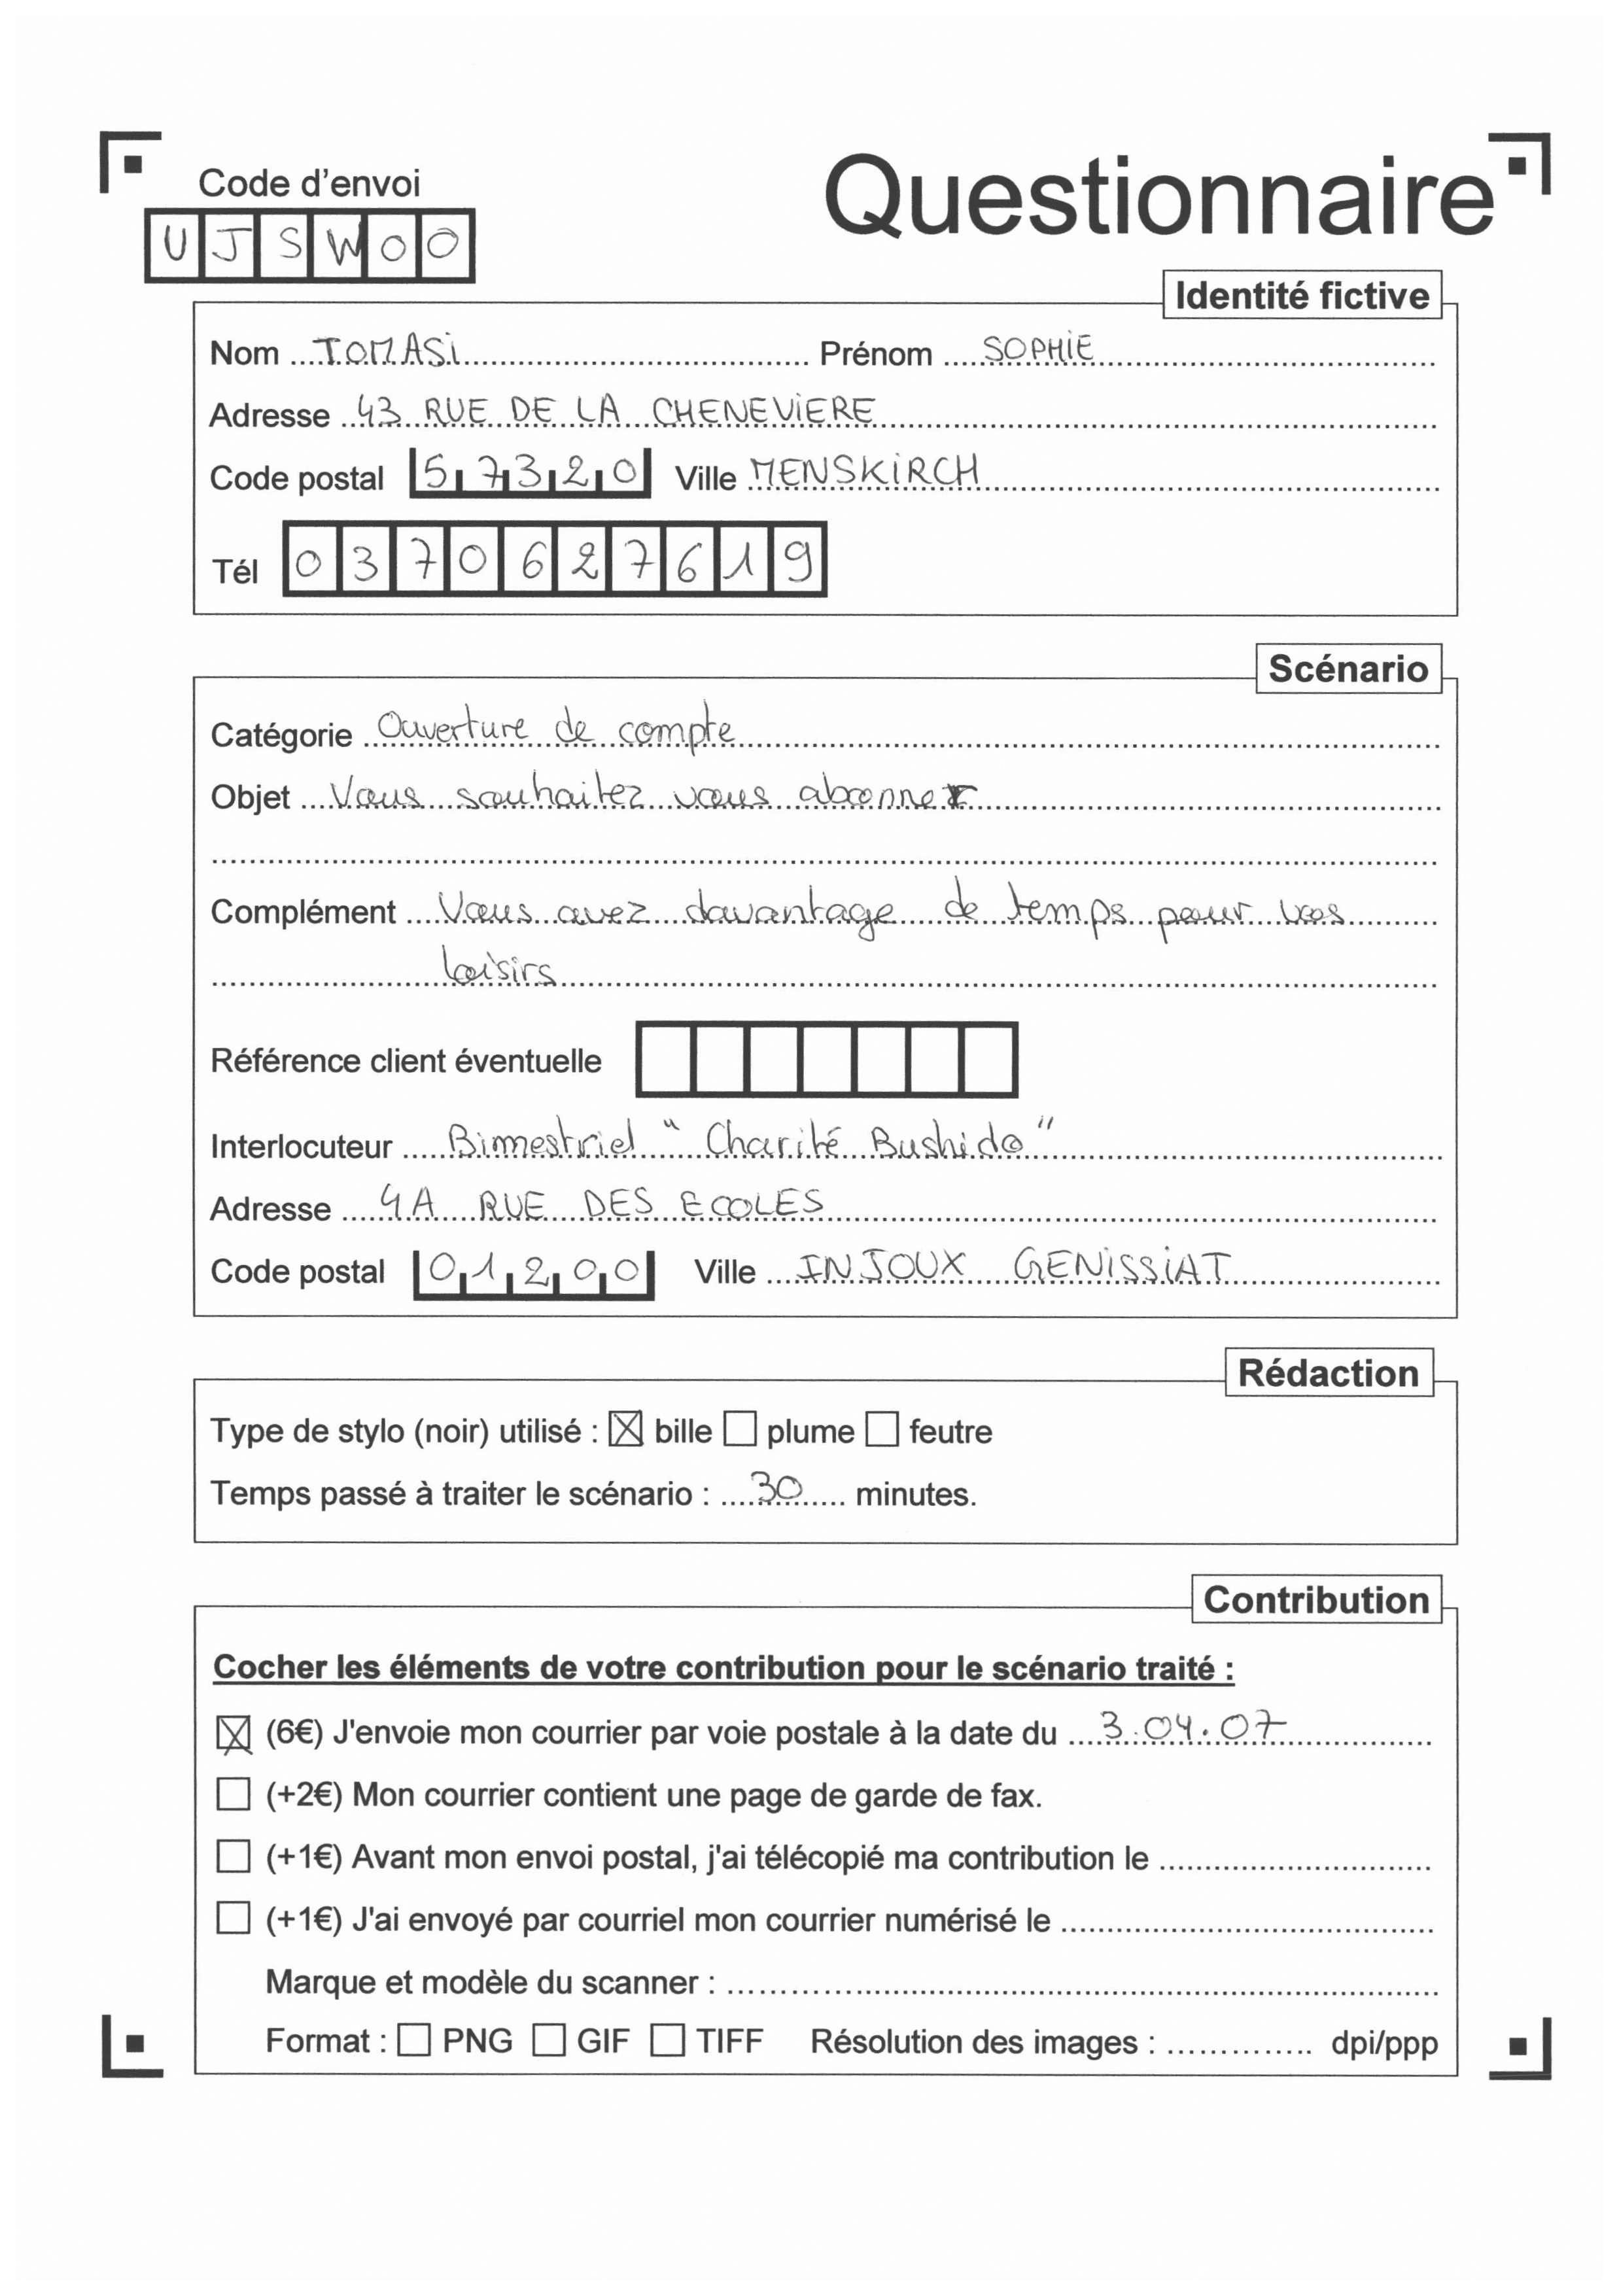 Questionnaire
Code d'envoi
UJSWOO
Identité fictive
Nom TOMASI Prénom SOPHIE
Adresse 43 RUE DE LA CHENEVIERE
Code postal 57320 Ville MENSKIRCH
Tél 0370627619
Scénario
Catégorie Ouverture de compte
Objet Vous souhaitez vous abonner
Complément Vous avez davantage de temps pour vos
loisirs
Référence client éventuelle
Interlocuteur Bimestriel "Charité Bushido"
Adresse 4A RUE DES ECOLES
Code postal 01200 Ville INJOUX GENISSIAT
Rédaction
Type de stylo (noir) utilisé : ☒ bille ☐ plume ☐ feutre
Temps passé à traiter le scénario : 30 minutes.
Contribution
Cocher les éléments de votre contribution pour le scénario traité :
☒ (6€) J'envoie mon courrier par voie postale à la date du 3.04.07
☐ (+2€) Mon courrier contient une page de garde de fax.
☐ (+1€) Avant mon envoi postal, j'ai télécopié ma contribution le
☐ (+1€) J'ai envoyé par courriel mon courrier numérisé le
Marque et modèle du scanner :
Format : ☐ PNG ☐ GIF ☐ TIFF Résolution des images : dpi/ppp